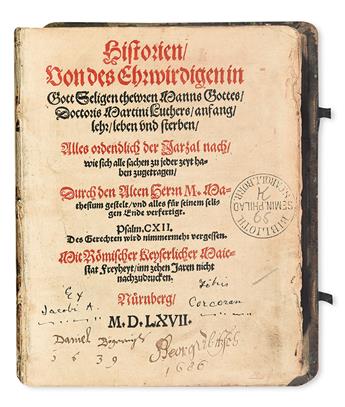 Historien/
Von des Ehrwirdigen in
Gott Seligen thewren Manns Gottes/
Doctoris Martini Luthers/ anfang/
lehr/ leben vnd sterben/
Alles ordendlich der Jarzal nach/
wie sich alle sachen zu jeder zeyt ha-
ben zugetragen/
Durch den Alten Herrn M. Ma-
thesium gestelt/ vnd alles für seinem seli-
gen Ende verfertigt.
Psalm. CXII.
Des Gerechten wird nimmermehr vergessen.
Mit Römischer Keyserlicher Maie-
stat Freyheyt/ inn zehen Jaren nicht
nachzudrucken.
Nürnberg/
M. D. LXVII.
Ex libris
Jacobi A. Corcoran
Daniel
1639
Georg
1686
BIBLIOTH
SEMIN PHILAD
S. CAROLI BORRO